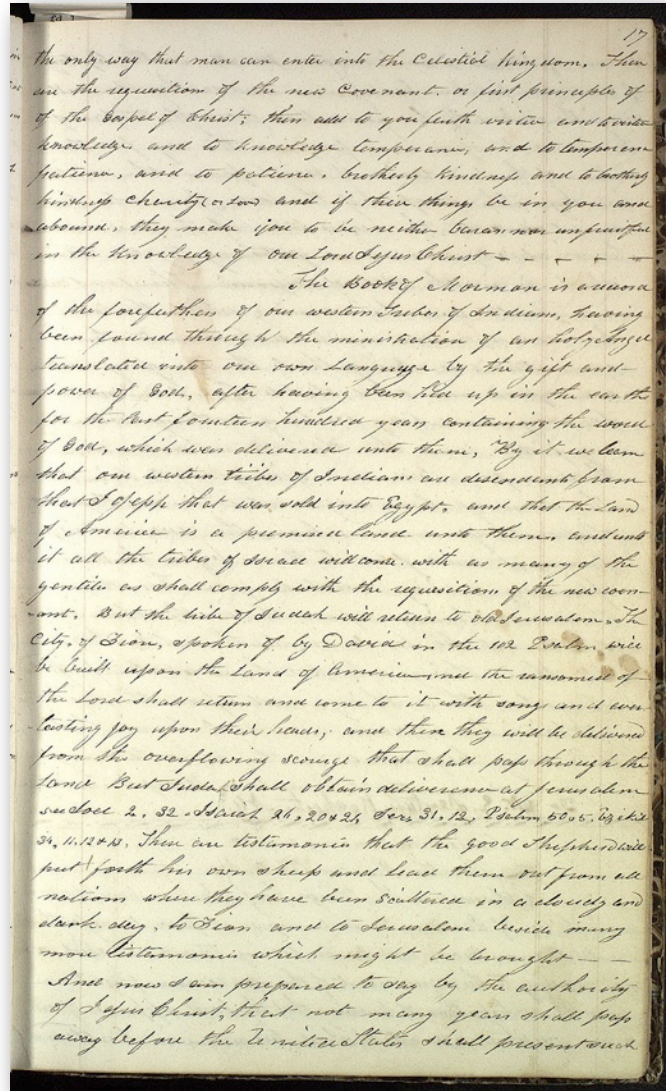 17
the only way that man can enter into the Celestial kingdom. These
are the requesitions of the new Covenant. or first principles of
of the Gospel of Christ; then add to you faith virtue and to virtue
knowledge and to knowledge temperance, and to temperence
patience, and to patience, brotherly kindness and to brotherly
kindness charity (or Love) and if these things be in you and
abound, they make you to be neither baran nor unfruitful
in the knowledge of our Lord Jesus Christ - - - - - -
The Book of Mormon is a record
of the forefathers of our western Tribes of Indians, having
been found through the ministration of an holy Angel
translated into our own Language by the gift and
power of God, after having been hid up in the earth
for the last fourteen hundred years containing the word
of God, which was delivered unto them, By it we learn
that our western tribes of Indians are descendants from
that Joseph that was sold into Egypt, and that the Land
of America is a promised land unto them, and unto
it all the tribes of Israel will come. with as many of the
gentiles as shall comply with the requesitions of the new coven-
-ant. But the tribe of Judah will return to old Jerusalem. The
City. of Zion, spoken of by David in the 102 Psalm will
be built upon the Land of America and the ransomed of
the Lord shall return and come to it with songs and ever
lasting joy upon their heads, and then they will be delivered
from the overflowing scourge that shall pass through the
Land But Judah shall obtain deliverence at Jerusalem
see Joel 2. 32. Isaiah 26, 20 & 21, Jer. 31, 12, Psalm 50. 5, Ezekiel
34, 11. 12 & 13. These are testamonies that the good Shepherd will
put forth his own sheep and lead them out from all
nations where they have been scattered in a cloudy and
dark day, to Zion and to Jerusalem beside many
more testamonies which might be brought — —
And now I am prepared to say by the authority
of Jesus Christ, that not many years shall pass
away before the United States shall present such